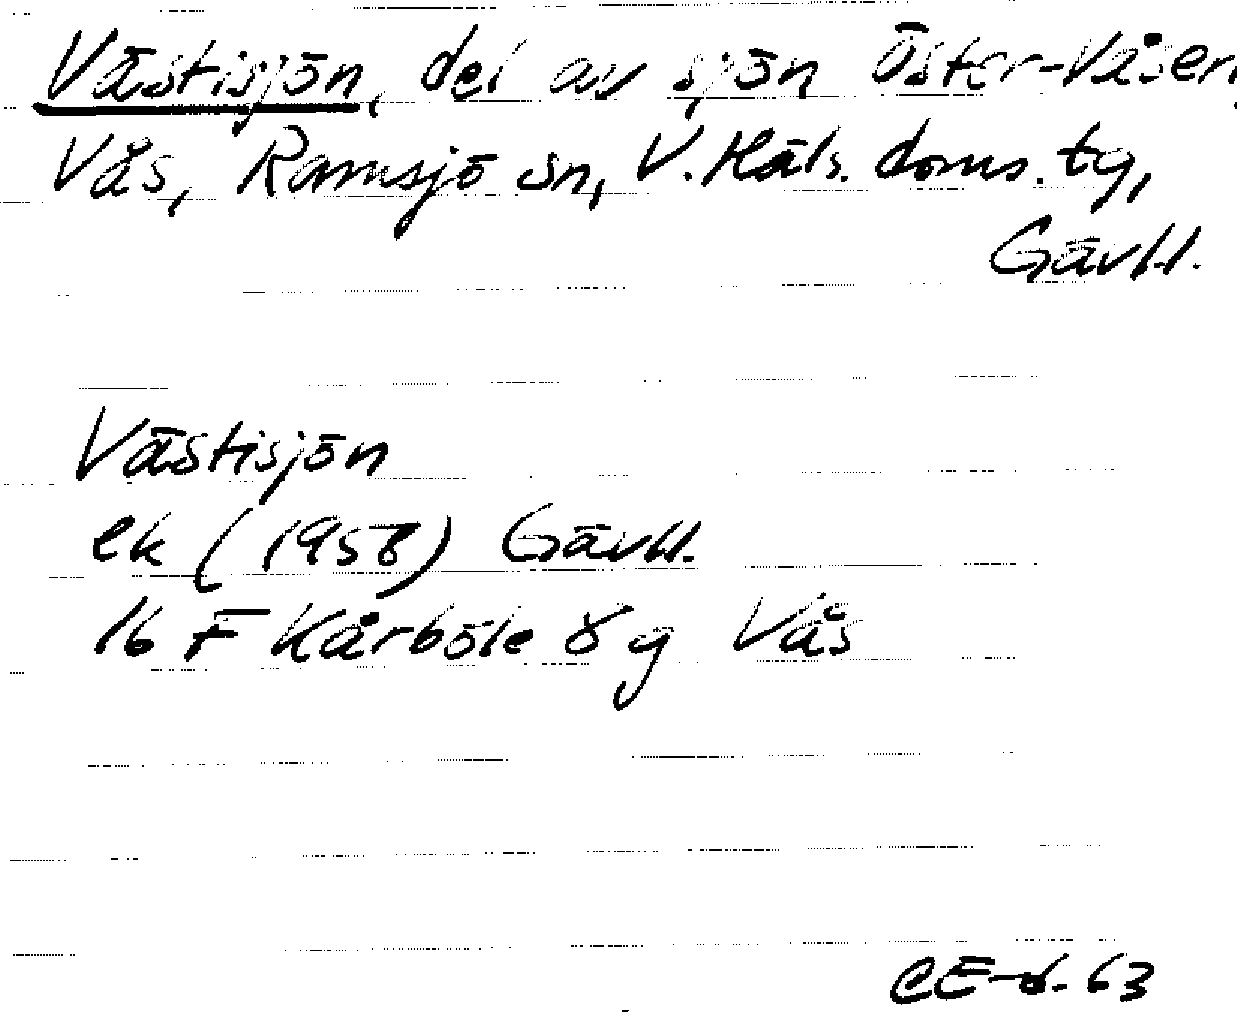 Västisjön, del av sjön Öster-Våsen,
Vås, Ramsjö sn, V. Häls. doms. tg,
GävH.
Västisjön
ek (1958) GävH.
16 F Kårböle 8 g Vås
63